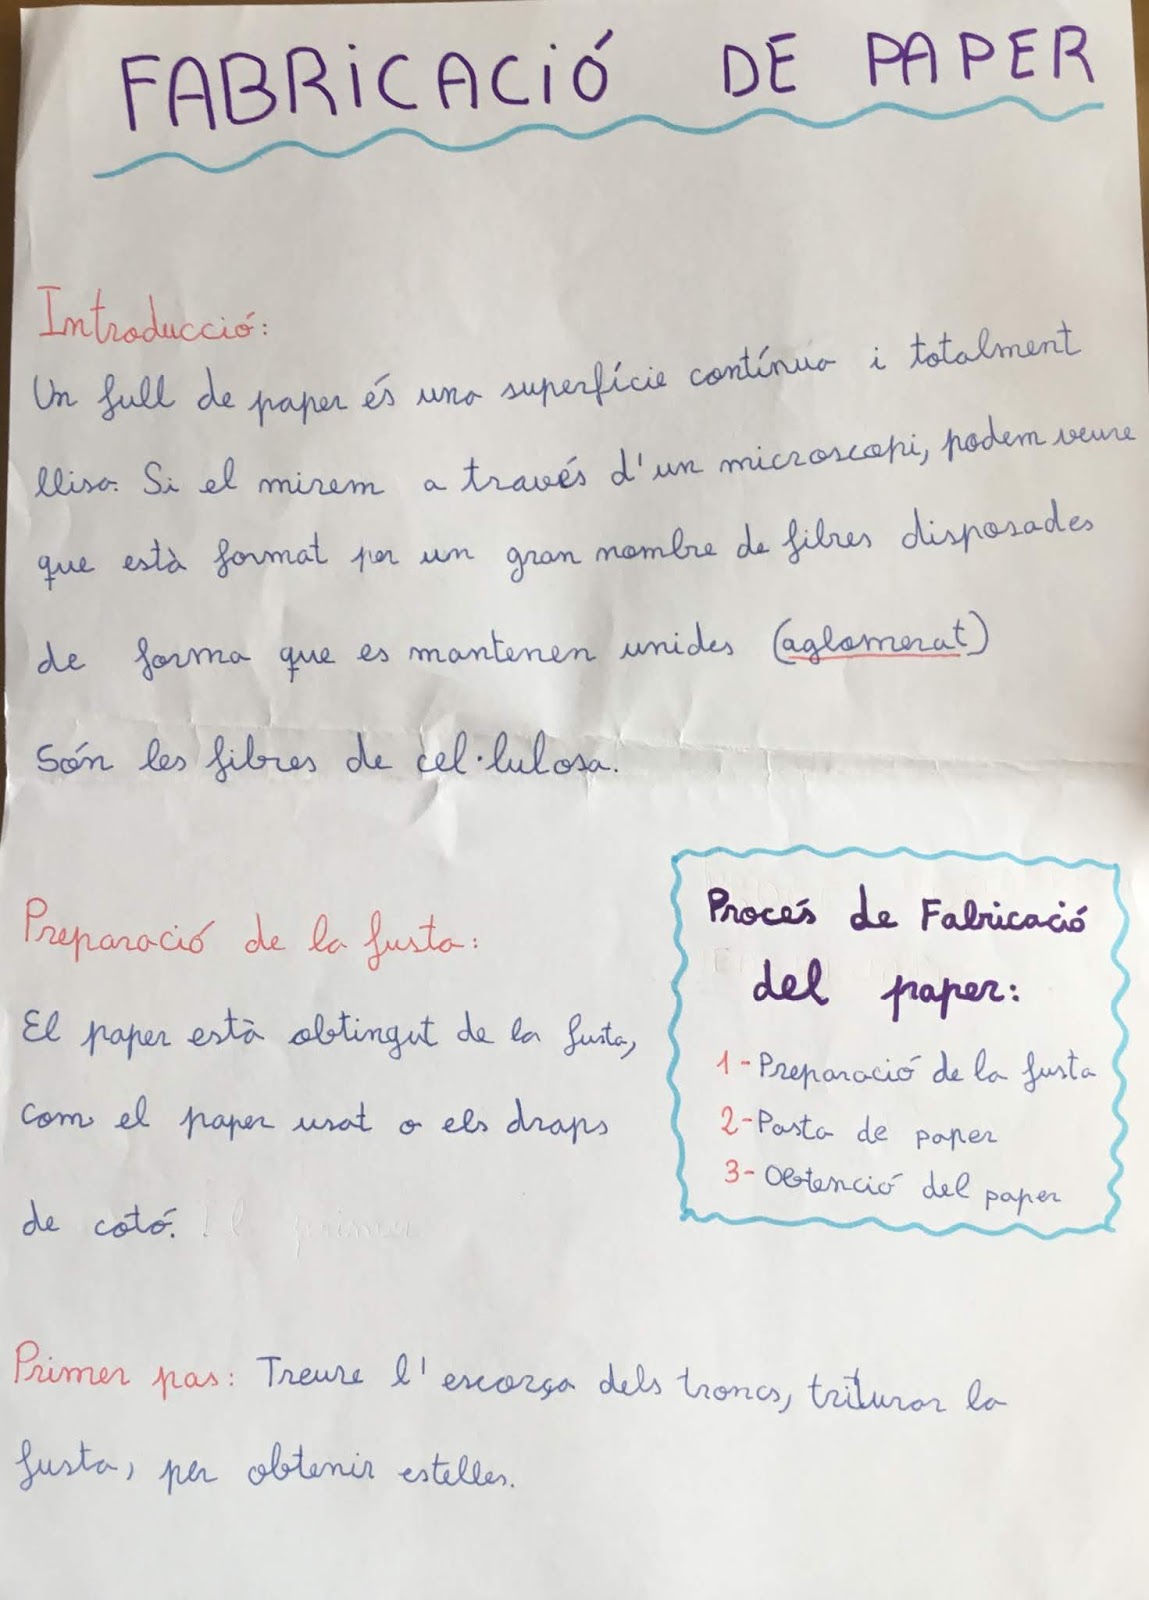 FABRiCACiÓ DE PAPER
Introducció:
Un full de paper és una superfície contínua i totalment
llisa. Si el mirem a través d'un microscopi, podem veure
que està format per un gran nombre de fibres disposades
de forma que es mantenen unides (aglomerat)
Són les fibres de cel·lulosa.
Preparació de la fusta:
El paper està obtingut de la fusta,
com el paper usat o els draps
de cotó.
Procés de Fabricació
del paper:
1-Preparació de la fusta
2-Pasta de paper
3-Obtenció del paper
Primer pas: Treure l'escorça dels troncs, triturar la
fusta, per obtenir estelles.